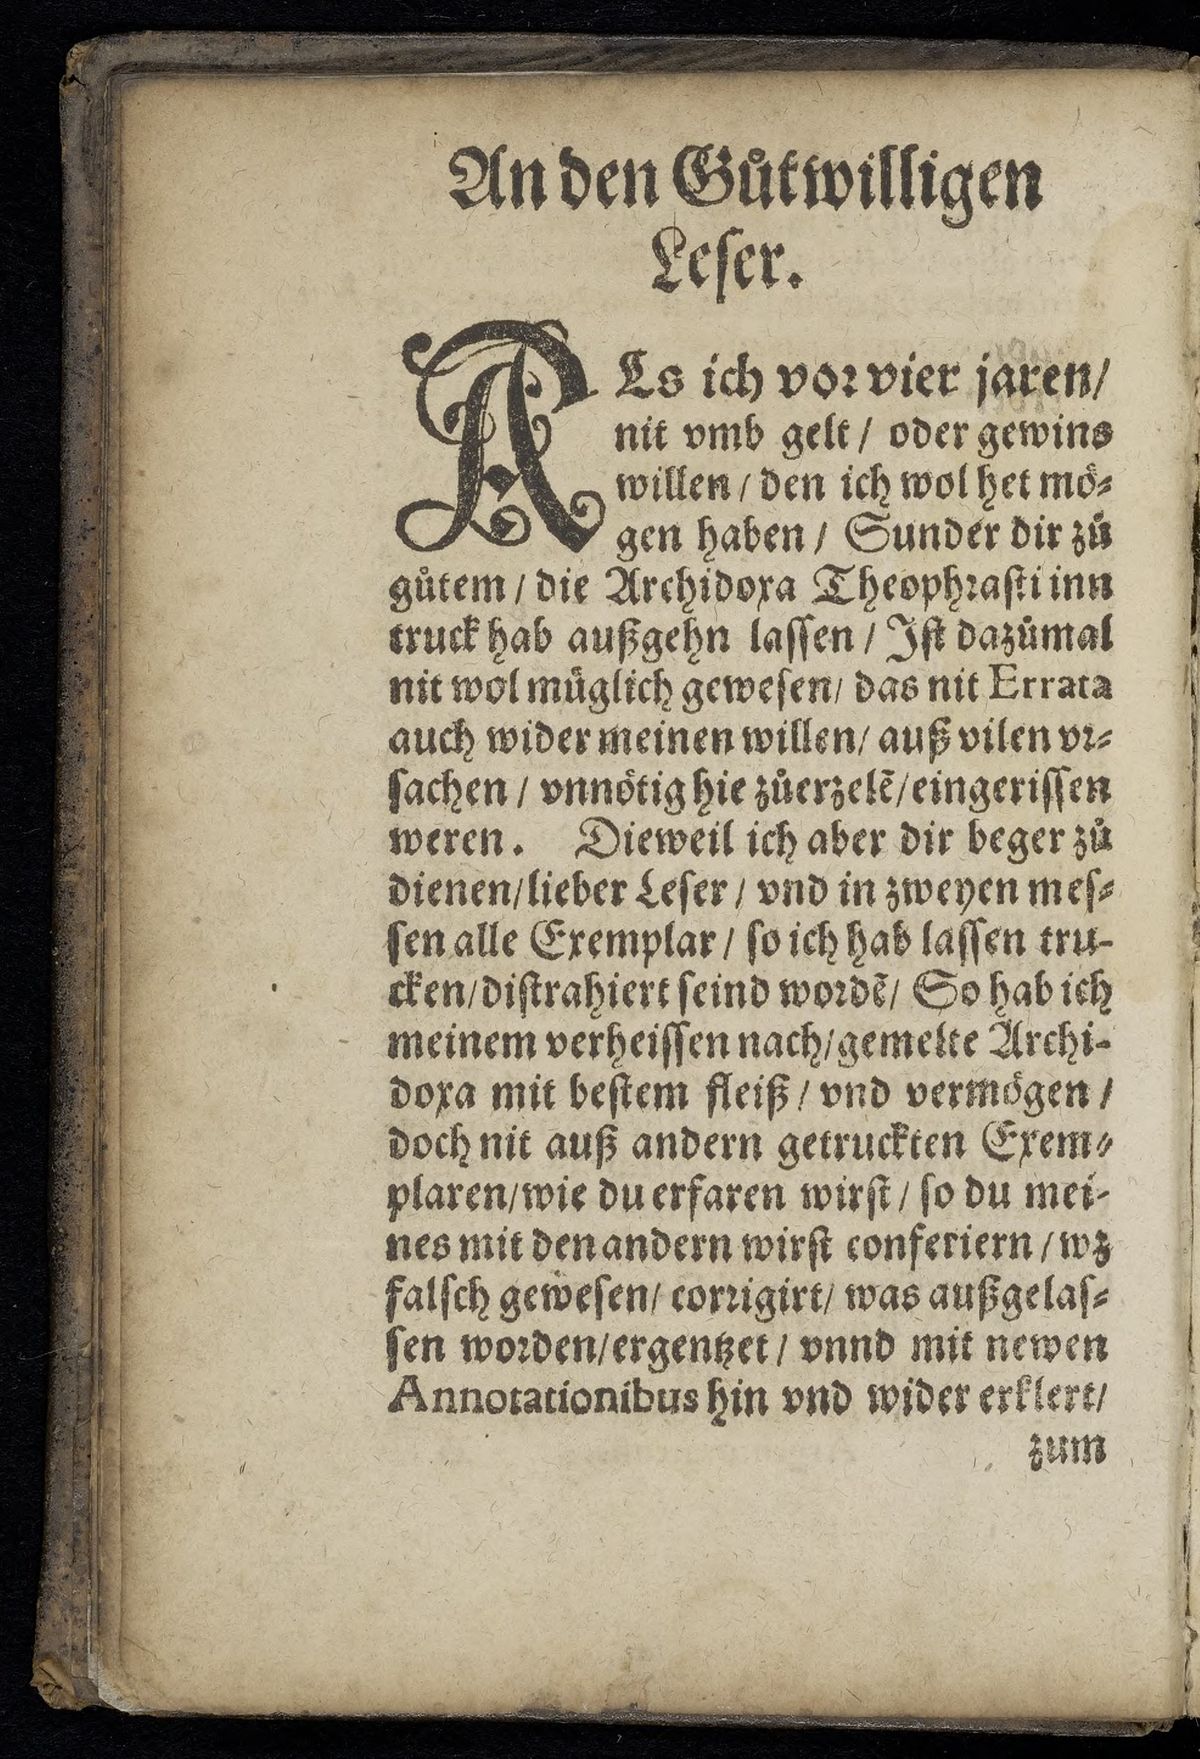 An den Gůtwilligen
Leser.
ALs ich vor vier jaren/
nit vmb gelt / oder gewins
willen / den ich wol het mö⸗
gen haben / Sunder dir zů
gůtem / die Archidoxa Theophrasti inn
truck hab außgehn lassen / Ist dazůmal
nit wol müglich gewesen/ das nit Errata
auch wider meinen willen/ auß vilen vr⸗
sachen / vnnötig hie zůerzelẽ/eingerissen
weren. Dieweil ich aber dir beger zů
dienen/lieber Leser / vnd in zweyen mes⸗
sen alle Exemplar / so ich hab lassen tru-
cken/distrahiert seind wordẽ/ So hab ich
meinem verheissen nach/gemelte Archi-
doxa mit bestem fleiß / vnd vermögen /
doch nit auß andern getruckten Exem⸗
plaren/wie du erfaren wirst / so du mei-
nes mit den andern wirst conferiern / wz
falsch gewesen/ corrigirt/ was außgelas⸗
sen worden/ergentzet / vnnd mit newen
Annotationibus hin vnd wider erklert/
zum